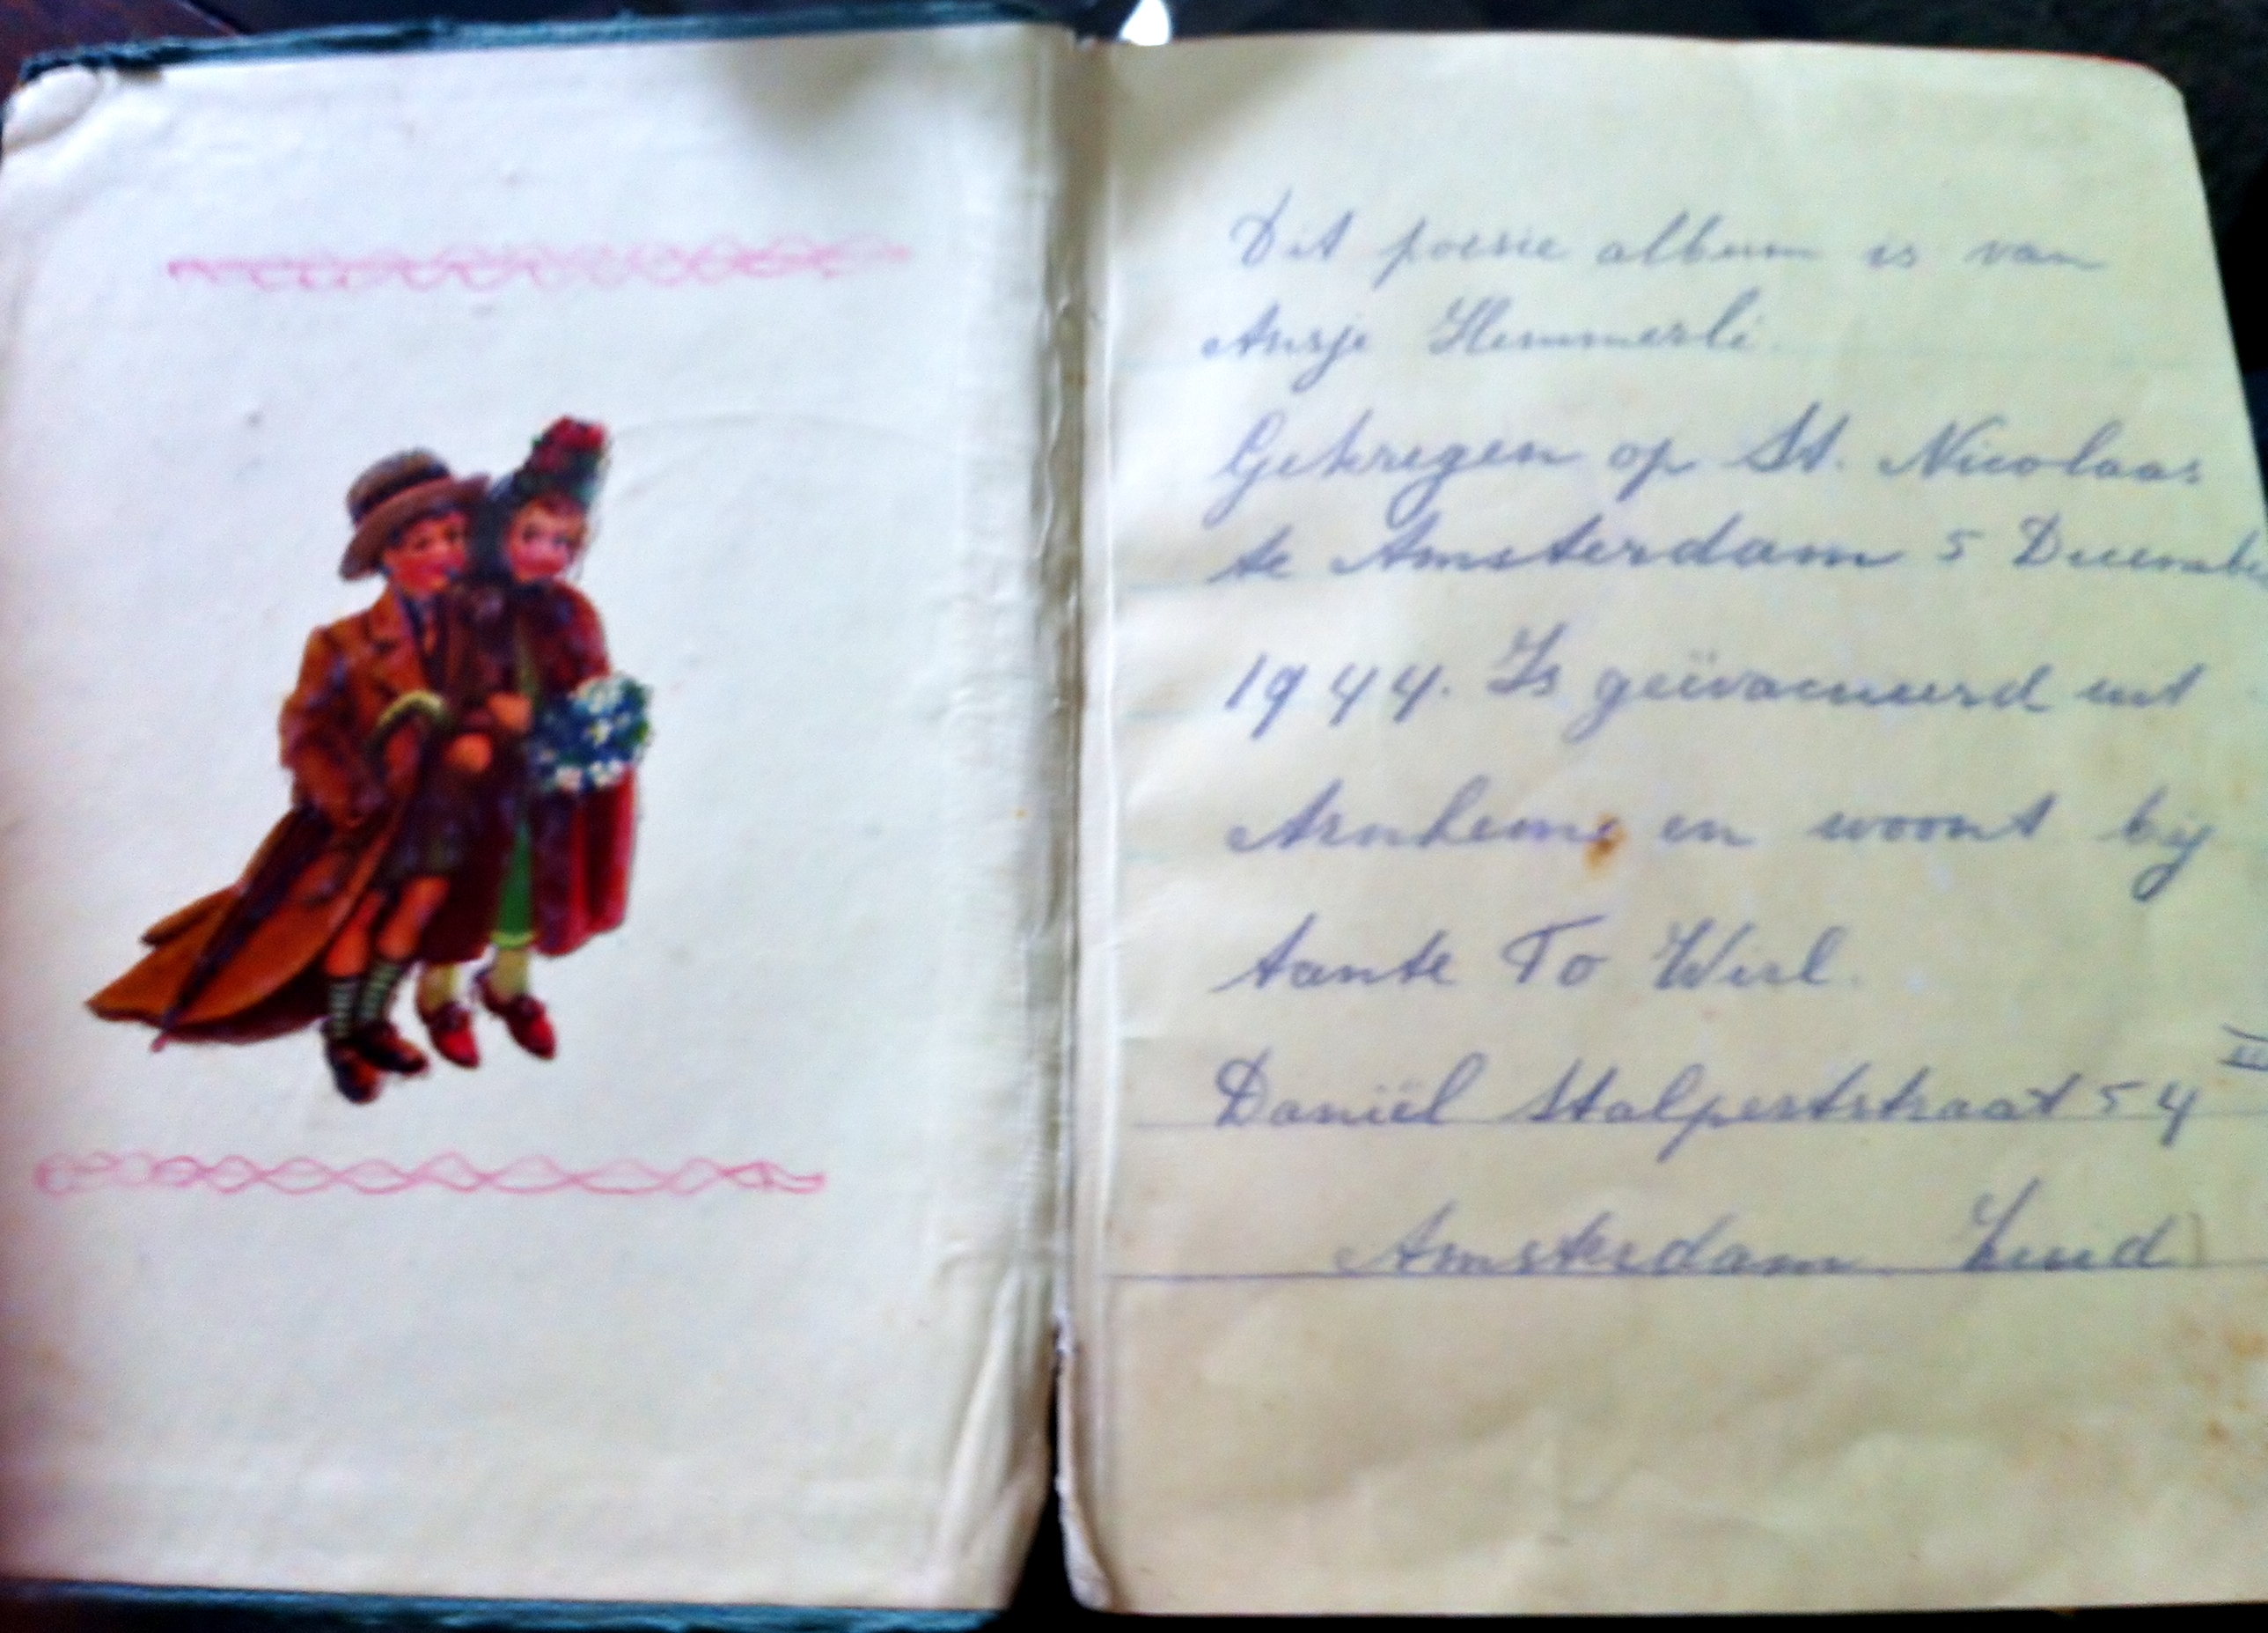 Dit poesie album is van
Ansje Hemmerli.
Gekregen op St. Nicolaas
te Amsterdam 5 December
1944. Is geëvacueerd uit
Arnhem en woont bij
tante To Wiel.
Daniël Stalpertstraat 54 III
Amsterdam Zuid